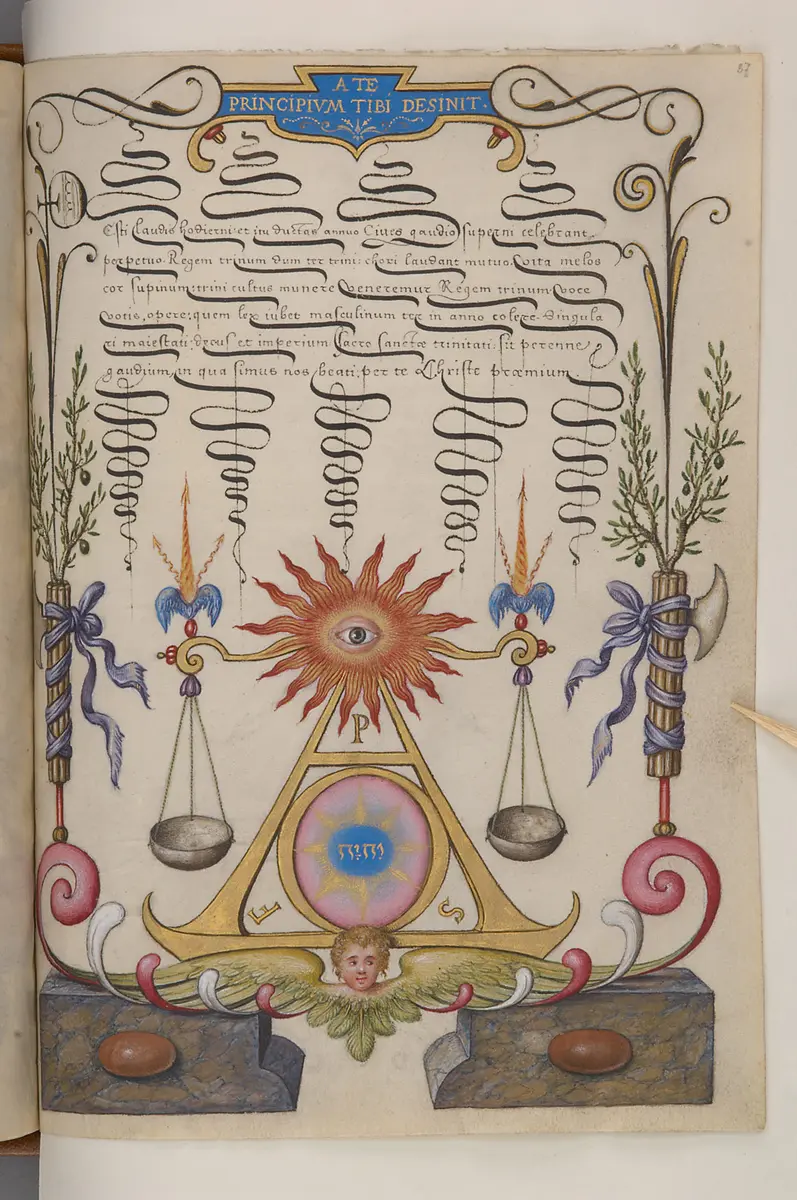 A TE
PRINCIPIVM TIBI DESINIT.
Esti laudis hodierni et in ductas annuo Cives gaudio superni celebrant
perpetuo. Regem trinum dum ter trini: chori laudant mutuo. Cuita melos
cor supinum: trini cultus munere Veneremur Regem trinum. Voce
votis, opere: quem lex iubet masculinum ter in anno colere. Singula
ri maiestati: decus et imperium Sacro Sanctæ trinitati: sit perenne
gaudium, in qua simus nos beati: per te Christe præmium.
P
יהוה
F
S